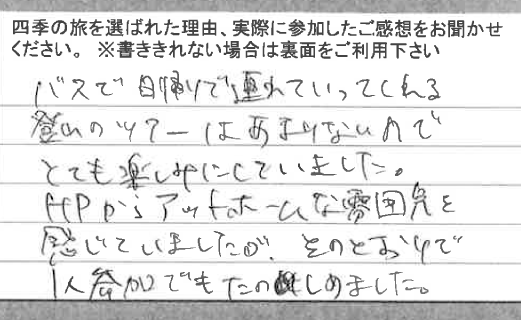 四季の旅を選ばれた理由、実際に参加したご感想をお聞かせ
ください。 ※書ききれない場合は裏面をご利用下さい
バスで日帰りで連れていってくれる
登山のツアーはあまりないので
とても楽しみにしていました。
HPからアットホームな雰囲気を
感じていましたが、そのとおりで
1人参加でもたのしめました。